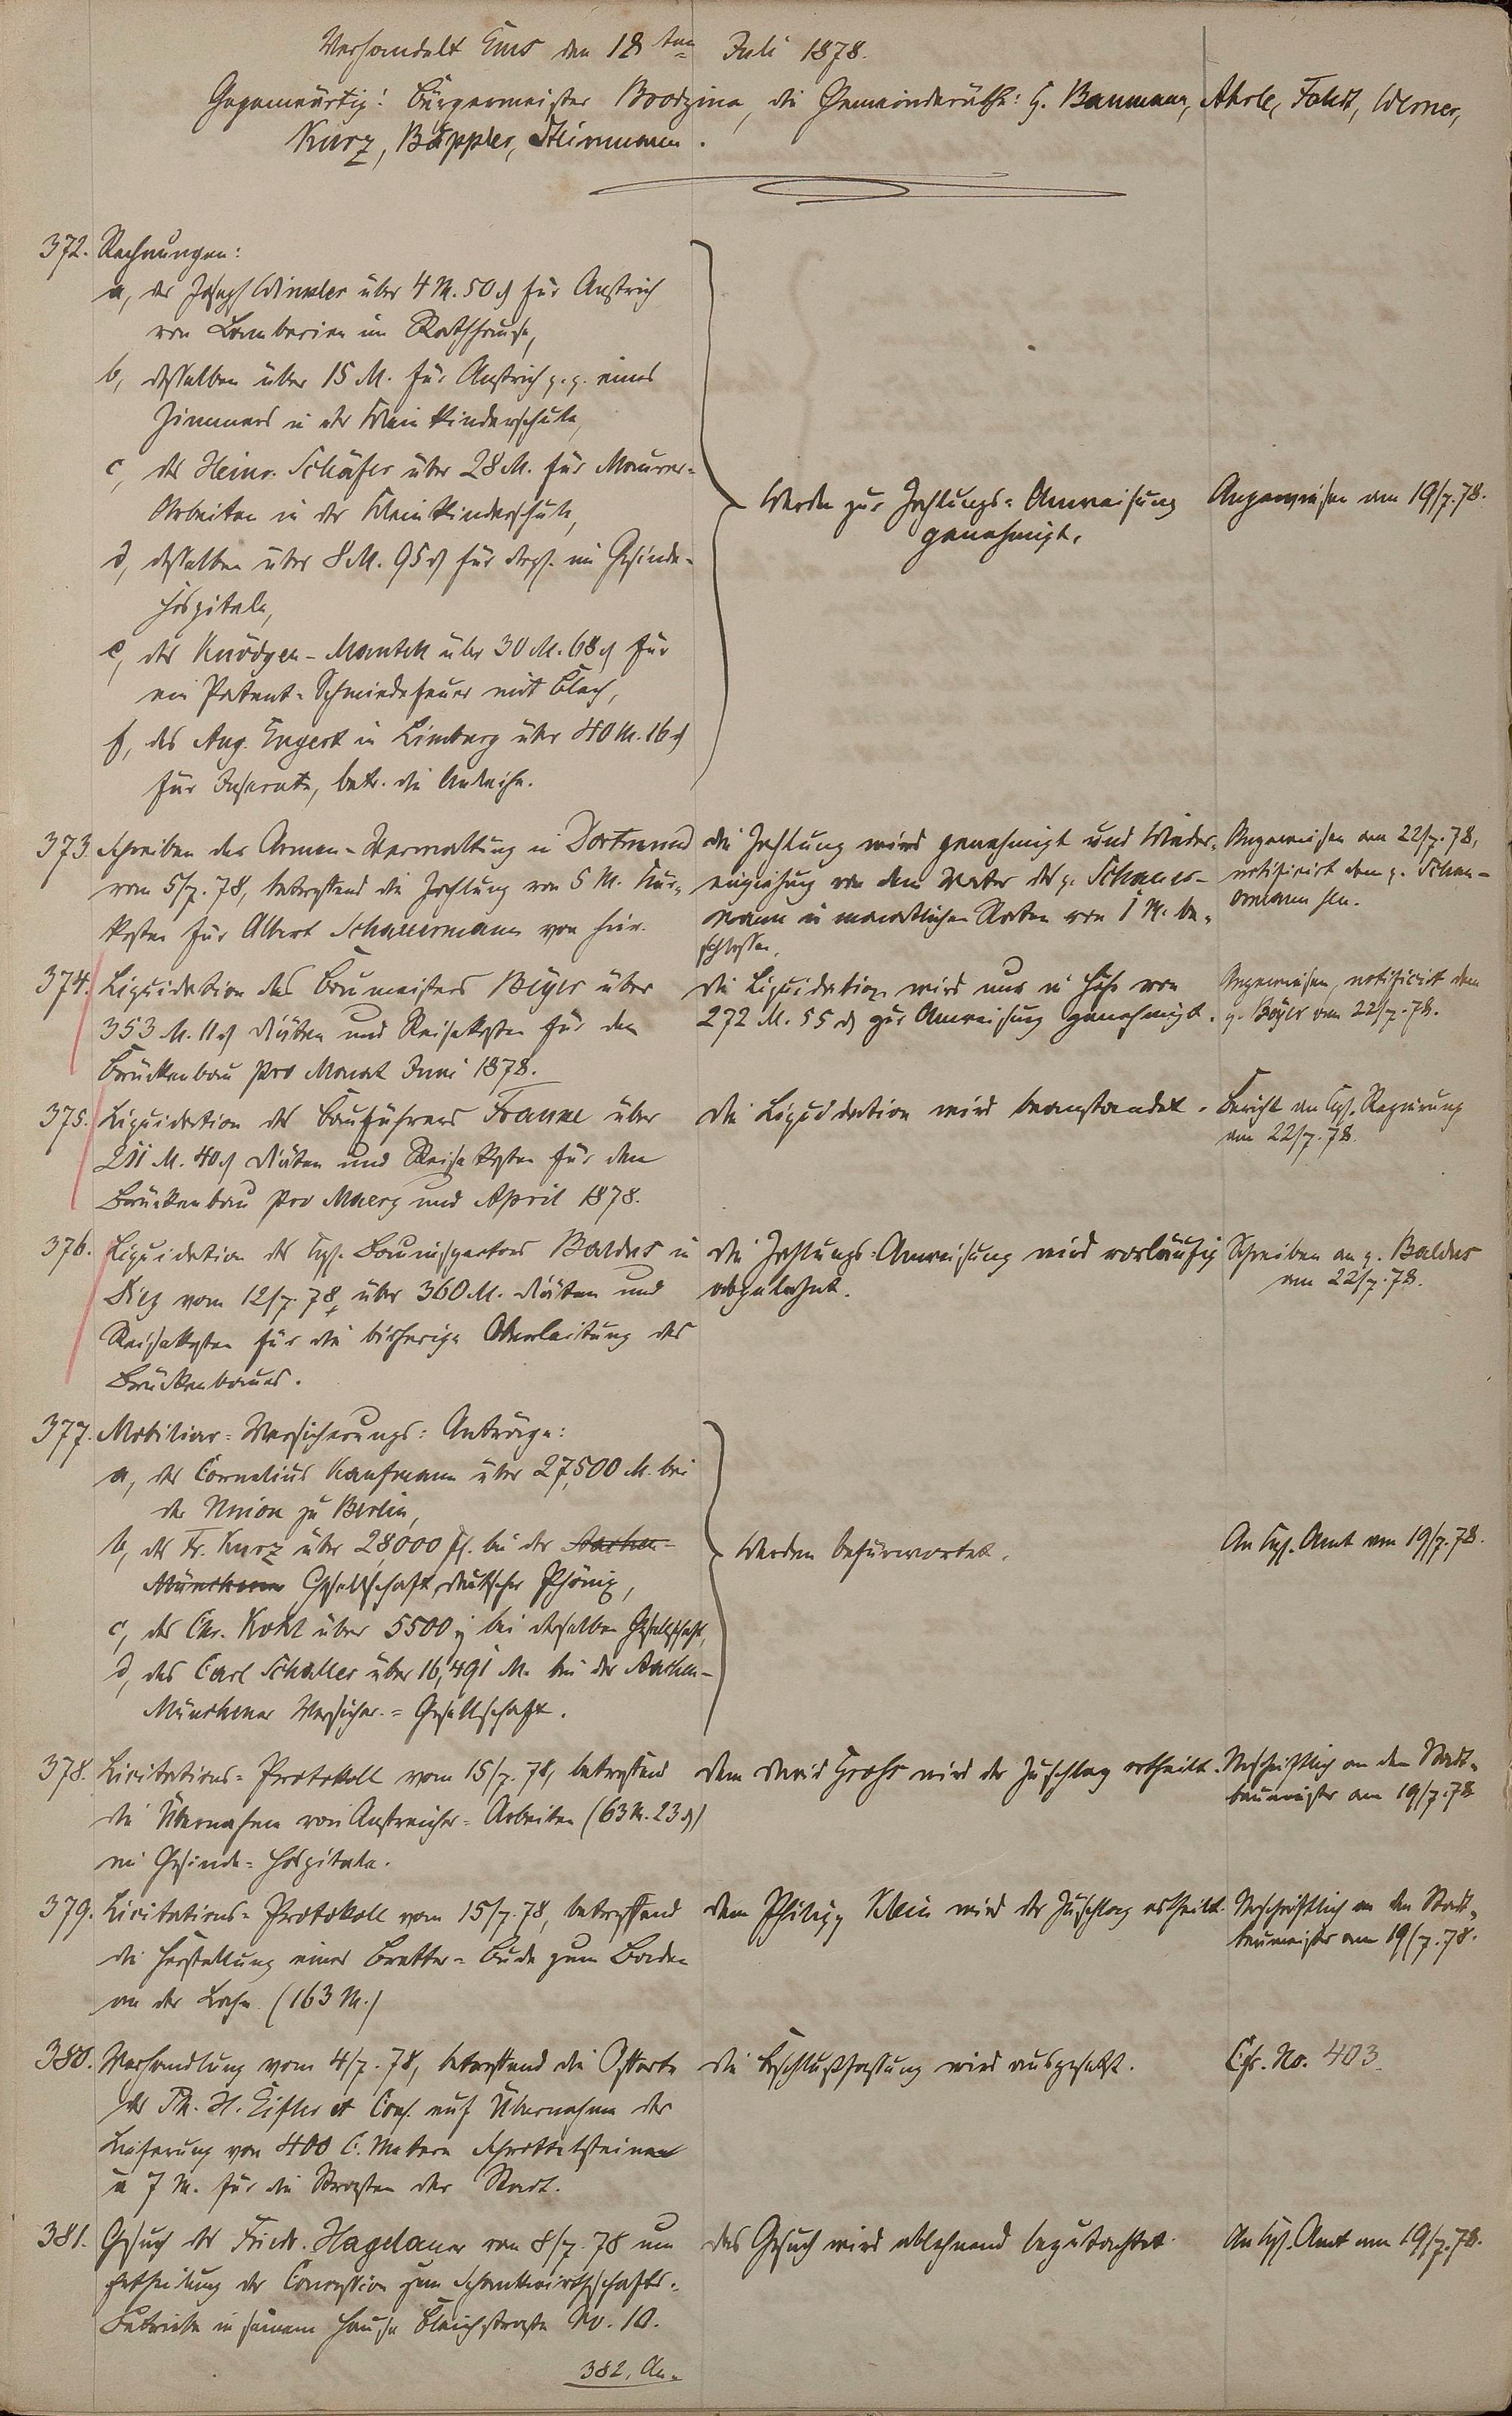 Verhandelt Ems den 18ten Juli 1878.
Gegenwärtig: Bürgermeister Brodzina, die Gemeinderäthe: H. Baumann, Ahrle, Foldt, Werner,
Kurz, Bäppler, Steinmann.
372. Rechnungen:
a, des Joseph Winkler über 4 M. 50 ₰ für Anstrich
von Lamberien im Rathhause,
b, desselben über 15 M. für Anstrich p.p. eines
Zimmers in der Kleinkinderschule,
c, des Heinr. Schäfer über 28 M. für Maurer-
Arbeiten in der Kleinkinderschule,
d, desselben über 8 M. 95 ₰ für dergl. im Gesinde-
hospitale,
e, der Knödgen-Mantell über 30 M. 68 ₰ für
ein Patent-Schmiedefeuer mit Blech,
f, des Aug. Engert in Limburg über 40 M. 16 ₰
für Inserate, betr. die Anleihe.
Werden zur Zahlungs-Anweisung
genehmigt.
Angewiesen am 19/7.78.
373. Schreiben der Armen-Verwaltung in Dortmund
vom 5/7.78, betreffend die Zahlung von 5 M. Kur-
kosten für Albert Schauermann von hier.
die Zahlung wird genehmigt und Wieder-
einziehung von dem Vater des p. Schauer-
mann in monatlichen Raten von 1 M. be-
schlossen.
Angewiesen am 22/7.78,
notificirt dem p. Schau-
ermann sen.
374. Liquidation des Baumeisters Beyer über
353 M. 11 ₰ Diäten und Reisekosten für den
Brückenbau pro Monat Juni 1878.
die Liquidation wird nur in Höhe von
272 M. 55 ₰ zur Anweisung genehmigt.
Angewiesen, notificirt dem
p. Beyer am 22/7.78.
375. Liquidation des Bauführers Franke über
211 M. 40 ₰ Diäten und Reisekosten für den
Brückenbau pro Maerz und April 1878.
die Liquidation wird beanstandet.
Bericht an Kgl. Regierung
am 22/7.78.
376. Liquidation des Kgl. Bauinspectors Baldus in
Diez vom 12/7.78, über 360 M. Diäten und
Reisekosten für die bisherige Oberleitung des
Brückenbaues.
die Zahlungs-Anweisung wird vorläufig
abgelehnt.
Schreiben an p. Baldus
am 22/7.78.
377. Mobiliar-Versicherungs-Anträge:
a, des Cornelius Kaufmann über 27,500 M. bei
der Union zu Berlin,
b, des Fr. Kurz über 28,000 fl. bei der Aachen-
Münchener Gesellschaft deutscher Phönix,
c, des Chr. Kohl über 5500 fl. bei derselben Gesellschaft,
d, des Carl Schaller über 16,491 M. bei der Aachen-
Münchener Versicher.-Gesellschaft.
Werden befürwortet.
An Kgl. Amt am 19/7.78.
378. Licitations-Protokoll vom 15/7.78, betreffend
die Übernahme von Anstreicher-Arbeiten (63 M. 23 ₰)
im Gesinde-Hospitale.
dem David Grohs wird der Zuschlag ertheilt.
Abschriftlich an den Stadt-
baumeister am 19/7.78
379. Licitations-Protokoll vom 15/7.78, betreffend
die Herstellung einer Bretter-Bude zum Baden
an der Lahn. (163 M.)
dem Philipp Klein wird der Zuschlag ertheilt.
Abschriftlich an den Stadt-
baumeister am 19/7.78.
380. Verhandlung vom 4/7.78, betreffend die Offerte
des Ph. H. Eifler et Cons. auf Übernahme der
Lieferung von 400 C. Metern Schrottelsteinen
à 7 M. für die Strassen der Stadt.
die Beschlußfassung wird ausgesetzt.
Cfr. No. 403.
381. Gesuch des Friedr. Hagelauer vom 8/7.78 um
Ertheilung der Concession zum Schankwirthschafts-
Betriebe in seinem Hause Bleichstrasse No. 10.
das Gesuch wird ablehnend begutachtet.
An Kgl. Amt am 19/7.78.
382, An-